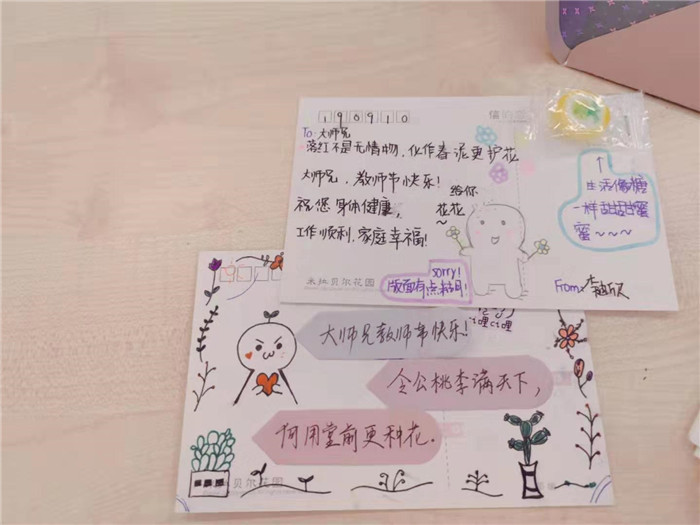 190910
To 大师兄
落红不是无情物,化作春泥更护花
大师兄,教师节快乐!
祝您身体健康,
工作顺利,家庭幸福!
给你
花花
~
sorry!
版面有点粗糙!
生活像糖
一样甜甜蜜
蜜~~~
From:
米拉贝尔花园
大师兄教师节快乐!
令公桃李满天下,
何用堂前更种花.
贝尔花园